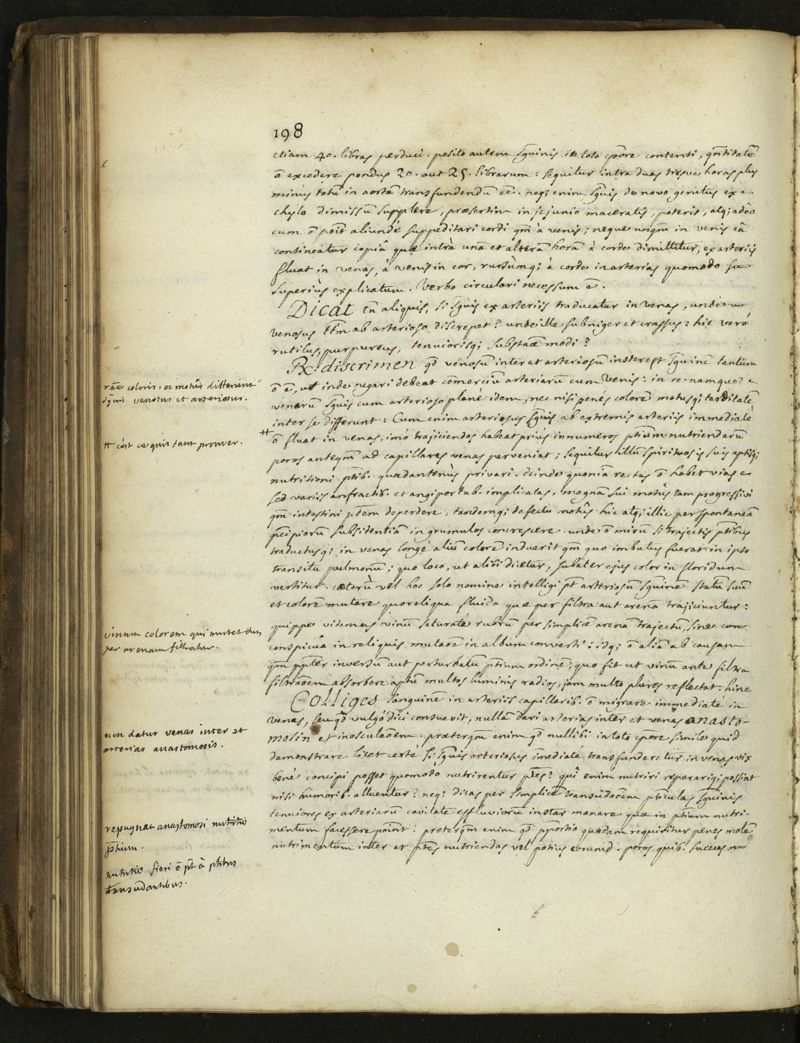 198
etiam 40. libras perduci. posito autem sguinis in toto cpore contenti, qntitatē
ō excedere pondus 20. aut 25. librarum: sequitur intra duas tresve horas plus
minus totū in aortā transfundendū eē. neq; enim sguis de novo genitus ex
chylo dimissū supplere, præsertim in jejunio maceratis, poterit, atq; adeo
cum ō poīt aliundè suppeditari cordi qm à venis; neque unqm in venis eâ
contineatur copiâ quæ intrà unā et alterā horā à corde dimittitur, ex arteriis
fluat in venas, à venis in cor, rursùmq; à corde in arterias quomodo
superiùs explicatum. verbo circulari necessum ē.
Dicat tn aliquis, si sguis ex arteriis traducatur in venas, unde
venosus ttm ab arterioso discrepet? unde ille subniger et crassus: hic verò
rutilus, purpureus, tenuiorisq; substāæ modi?
R. discrimen qd venosū inter et arteriosū intercept sguinē tantum
ō ē, ut inde negari debeat comerciū arteriarū cum venis: in re namque
venarū sguis cum arterioso planè idem, nec nisi penès colorē motusq; tarditatē
inter se differunt: Cum enim arteriosus sguis ab extremis arteriis immediatè
ō fluat in venas, imò trajiciendos habeat prius innumeros ptium nutriendarū
poros anteqm ad capillares venas perveniat; sequitur illū spirituosis suis aptisq;
nutritioni ptib. quadantenùs privari. deinde quoniā rectas ō habet vias
sed variis anfractib. et angiportub. implicatas. magnam sui motûs tam progressivi
qm intestini ptem deperdere. tandemq; defectu motûs hic atq; illic per spontaneā
pcipiorū subsidentiā in grumulos concrescere. unde ō mirū si trajectis ptibus
traductusq; in venas longè aliū colorē induerit qm quo imbutus fuerat in ipso
transitu pulmonū; quo loco, ut alibi dicetur, subater ejus color in floridum
vertitur. cæterū vel hoc solo nomine intelligi pt arteriosū sguinē statū suū
et colorē mutare quo reliqua fluida quæ per filtra aut arenā trajiciuntur:
quippe videmus vinū saturatè rubrū per simplicē arenā trajectū, sine
conspicuâ in reliquis mutaōe in album converti: idq; ō aliā ab causam
qm ppter inversū aut perturbatū ptium ordinē; quo fit ut vinū ante filtra
filtraōem absorbere aptū multos luminis radios, jam multo plures reflectat. hinc
Colliges sanguinē in arteriis capillarib. ō migrare immediatè in
venas, seu qd vulgò dici consuevit, nullā dari arterias inter et venas anasto-
mosin et inosculaōem. præterqm enim qd nullibi in toto cpore simile quid
demonstrare licet certè si sguis arteriosus imediatè transfunderetur in venas vix
benè concipi posset quomodo nutrirentur ptes? qui enim nutriri repararisq; possint
nisi humorib. alluentur? neq; dicas per simplicē transudaōem pticulas sguinis
tenuiores ex arteriarū cavitate effluviorū instar manare quæ in ptium nutri-
mentum facessere poīnt: præterqm enim qd pportio quædam requiritur penes molē
nutrimentum inter et ptes nutriendas vel potius earumd. poros quib. succus
raōe coloris et motûs differunt
sguis venosus et arteriosus.
vinum colorem qui mutet dum
per arenam filtratur.
non datur venas inter et
arterias anastomosis.
repugnat anastomosi nutritio
ptium.
nutritio fieri ō pt à ptibus
transudantibus.